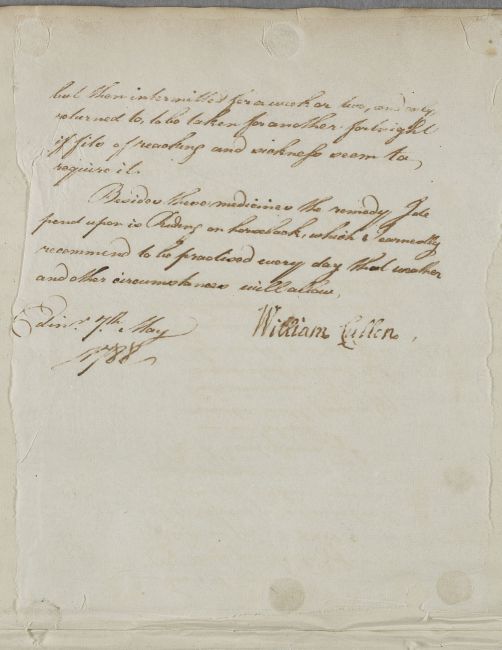 but then intermitted for a week or two, and only
returned to, to be taken for another fortnight
if fits of reaching and sickness seem to
require it.
Besides these medicines the remedy I de
pend upon is Riding on horseback, which I earnestly
recommend to be practised every day that weather
and other circumstances will allow.
Edinr. 7th May
1788
William Cullen.